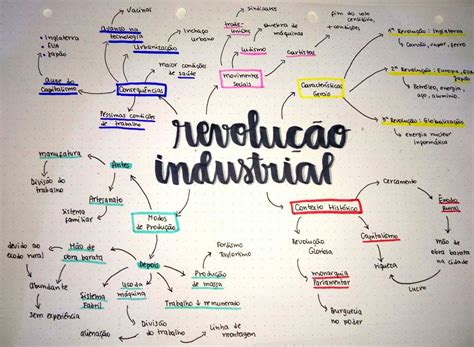 revolução
industrial
Consequências
Vacinas
Avanço na
tecnologia
Urbanização
Inchaço
urbano
maior condições
de saúde
Péssimas condições
de trabalho
Auge do
Capitalismo
• Inglaterra
• EUA
• Japão
movimentos
Sociais
trade-
unions
sindicatos
ludismo
quebra de
máquinas
Cartistas
fim do voto
censitário,
+ condições
Características
Gerais
1ª Revolução: Inglaterra
Carvão, vapor, ferro
2ª Revolução: Europa, EUA
Japão
Petróleo, energia,
aço, alumínio.
3ª Revolução: Globalização
energia nuclear
informática
Contexto Histórico
Cercamento
Êxodo
Rural
mão de
obra barata
na cidade
Lucro
riqueza
Capitalismo
Revolução
Gloriosa
monarquia
Parlamentar
Burguesia
no poder
Modos
de Produção
Antes
manufatura
Divisão do
trabalho
Artesanato
Sistema
familiar
Depois
Mão de
obra barata
devido ao
êxodo rural
Abundante
Sem experiência
Sistema
Fabril
Uso da
máquina
alienação
Divisão
do trabalho
Linha de
montagem
Trabalho + remunerado
Produção
de massa
Fordismo
Taylorismo